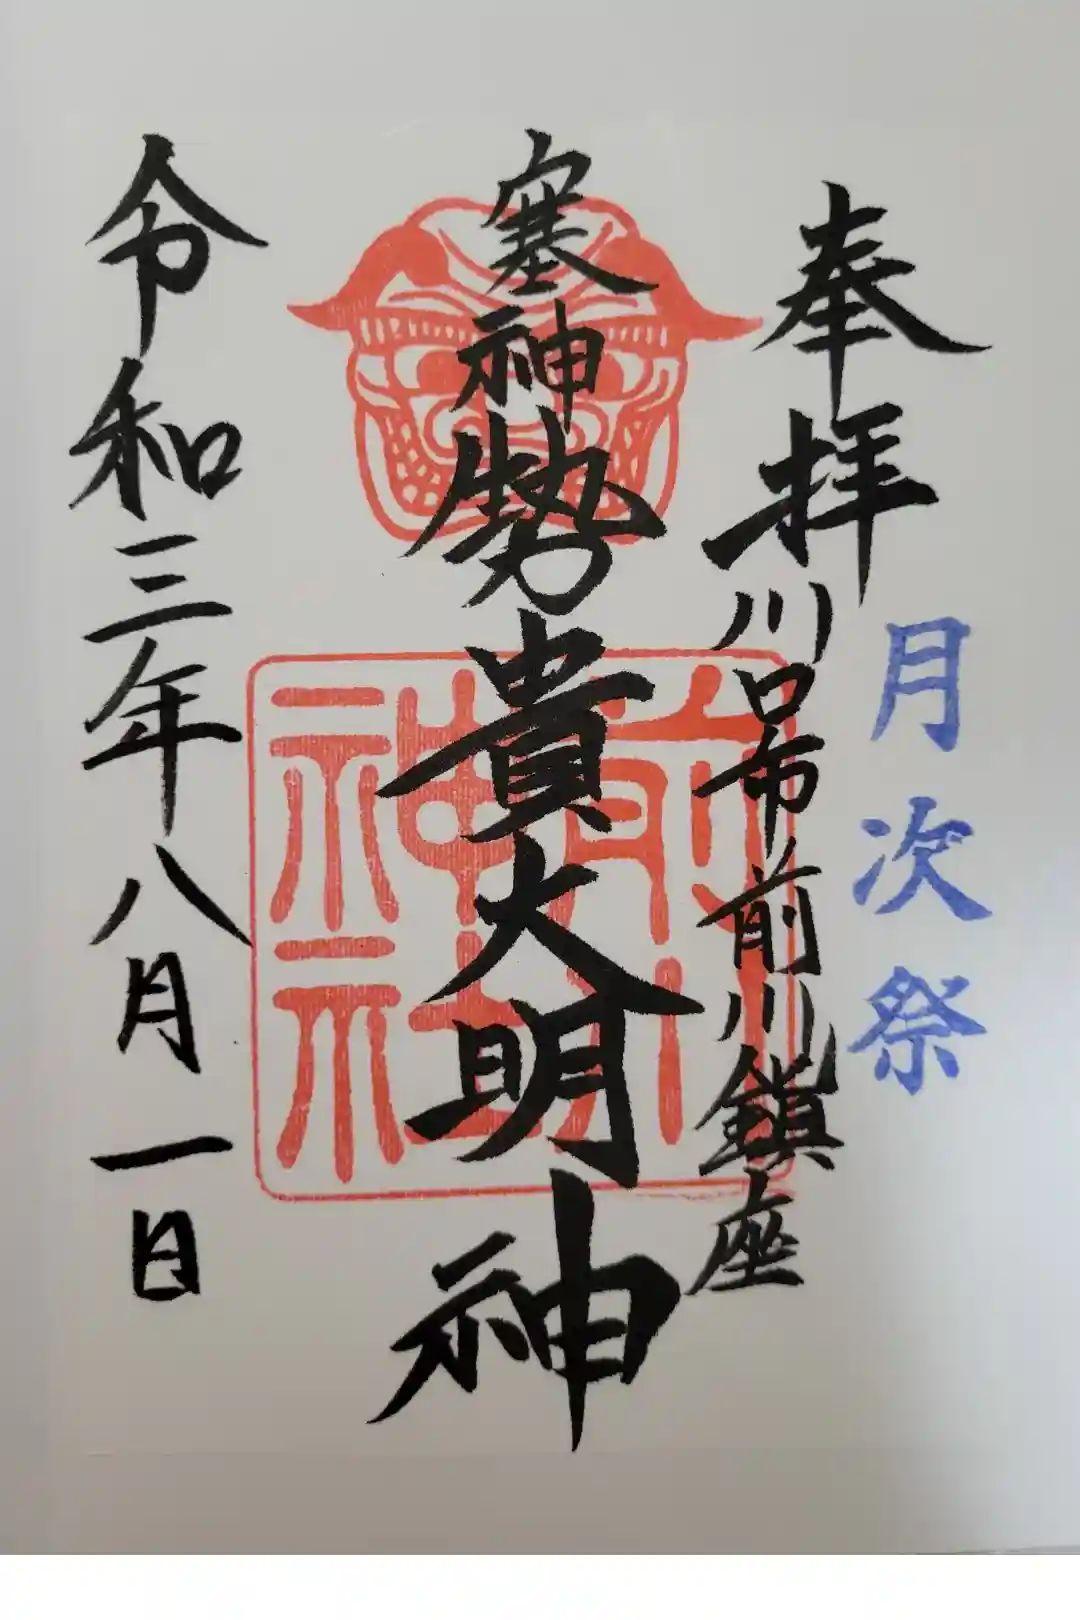 月次祭
奉拝
川口市前川鎮座
塞神
勢貴大明神
前川神社
令和三年八月一日